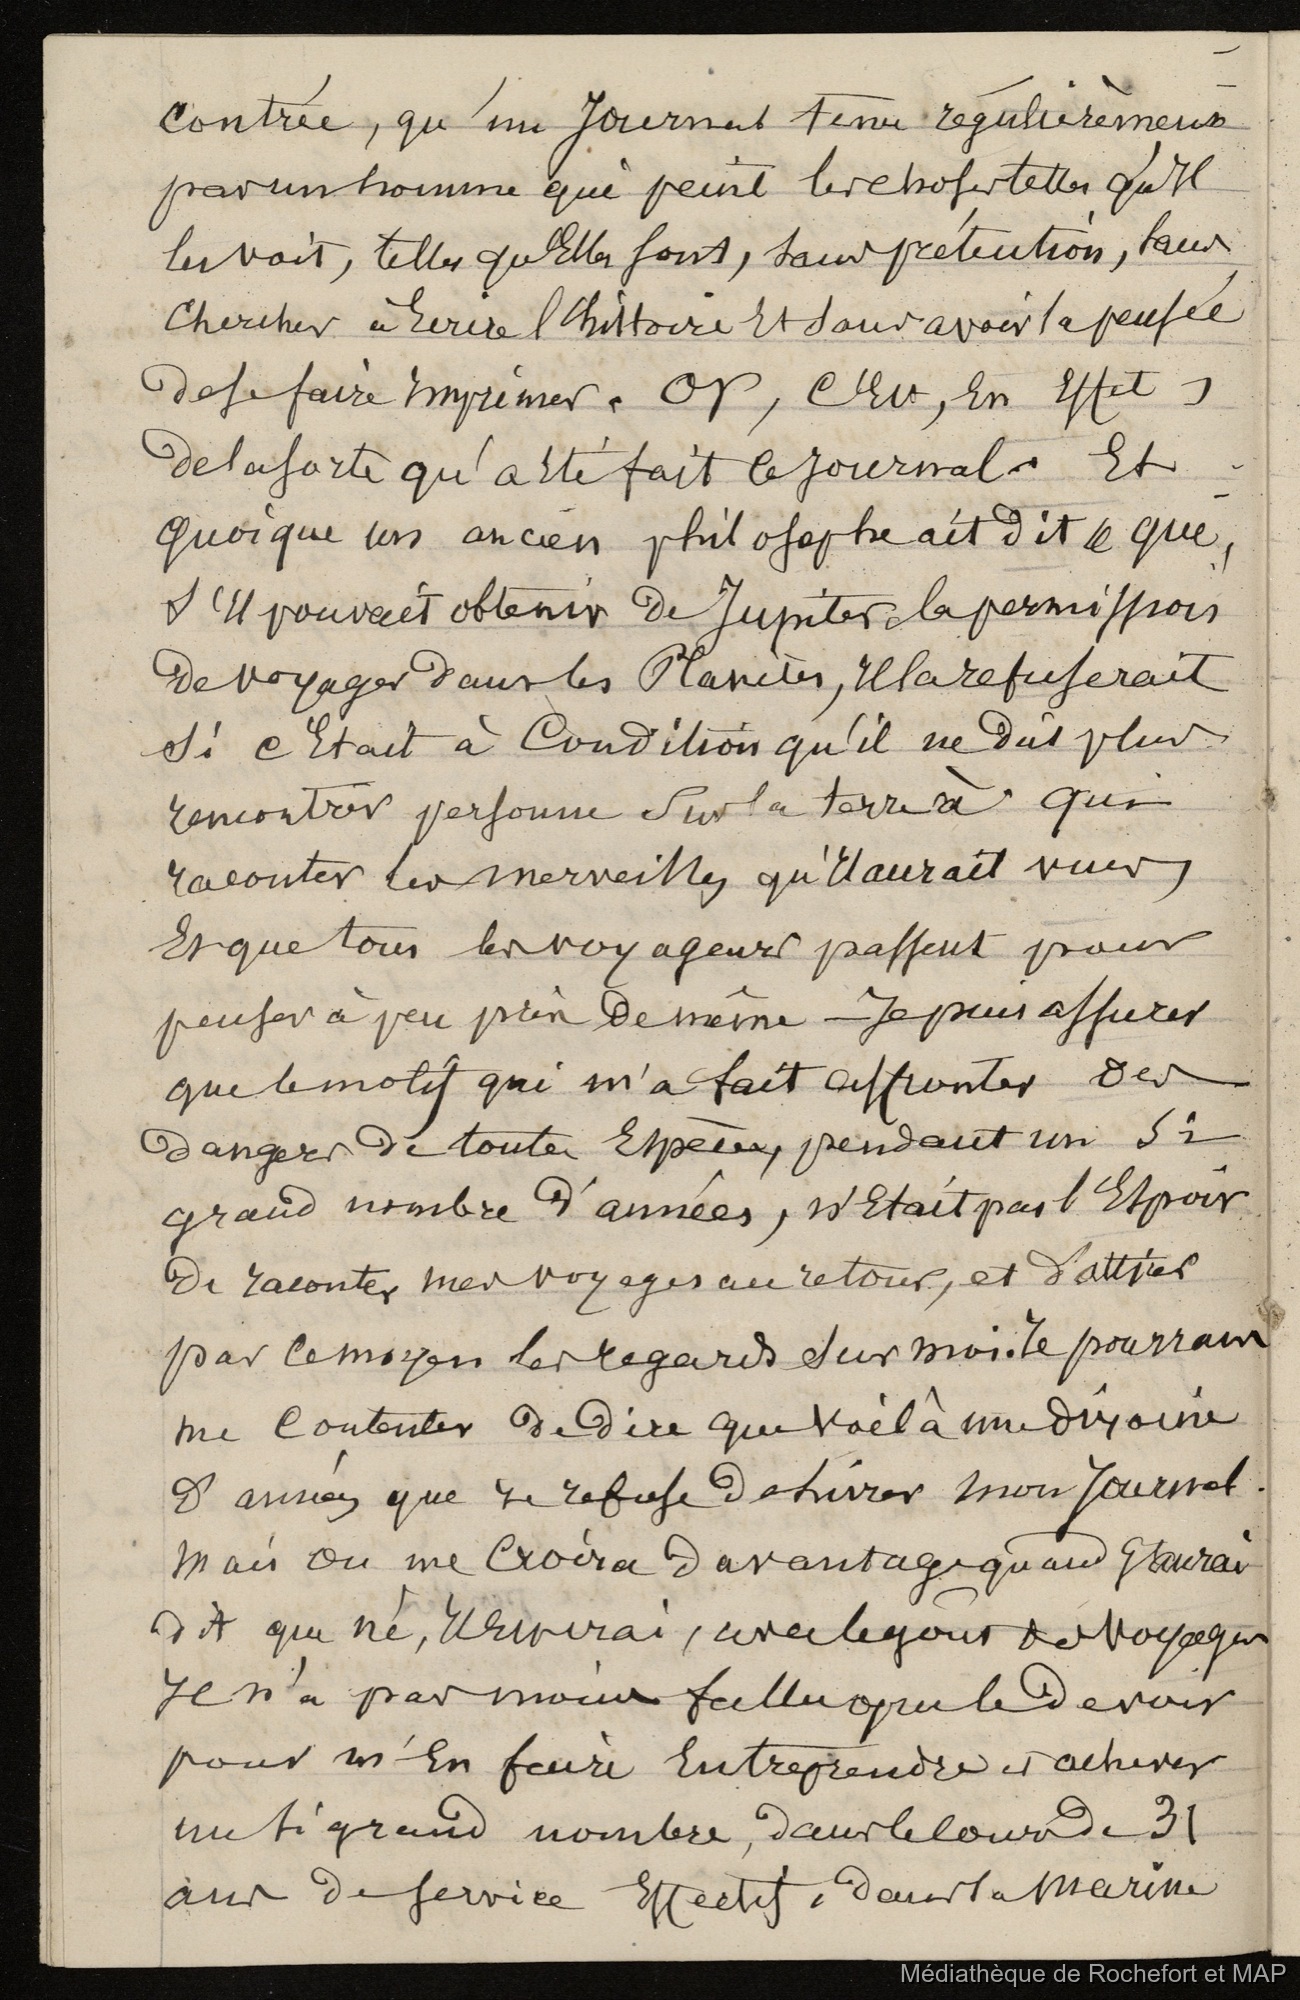 contrée, qu'un Journal tenu régulièrement
par un homme qui peint les choses telles qu'Il
les voit, telles qu'Elles sont, sans prétention, sans
chercher à Ecrire l'histoire Et sans avoir la pensée
de se faire Imprimer. Or, C'Est, En Effet,
de la sorte qu'a Eté fait ce Journal. Et
quoique un ancien philosophe ait dit que,
S'Il pouvait obtenir de Jupiter la permission
de voyager dans les Planètes, Il la refuserait
Si c'Etait à Condition qu'il ne dût plus
rencontrer personne Sur la terre à qui
raconter les merveilles qu'Il aurait vues,
Et que tous les voyageurs passent pour
penser à peu près de même — Je puis assurer
que le motif qui m'a fait affronter des
dangers de toute Espèce, pendant un Si
grand nombre d'années, n'Etait pas l'Espoir
de raconter mes voyages au retour, et d'attirer
par ce moyen les regards Sur moi. Je pourrais
me Contenter de dire que voilà une dizaine
d'années que je refuse de livrer mon Journal.
Mais on me Croira davantage quand J'aurai
dit que né, Il Est vrai, avec le goût des voyages
Il n'a pas moins fallu que le devoir
pour m'En faire Entreprendre et achever
un si grand nombre, dans le cours de 31
ans de service Effectif, dans la Marine
Médiathèque de Rochefort et MAP